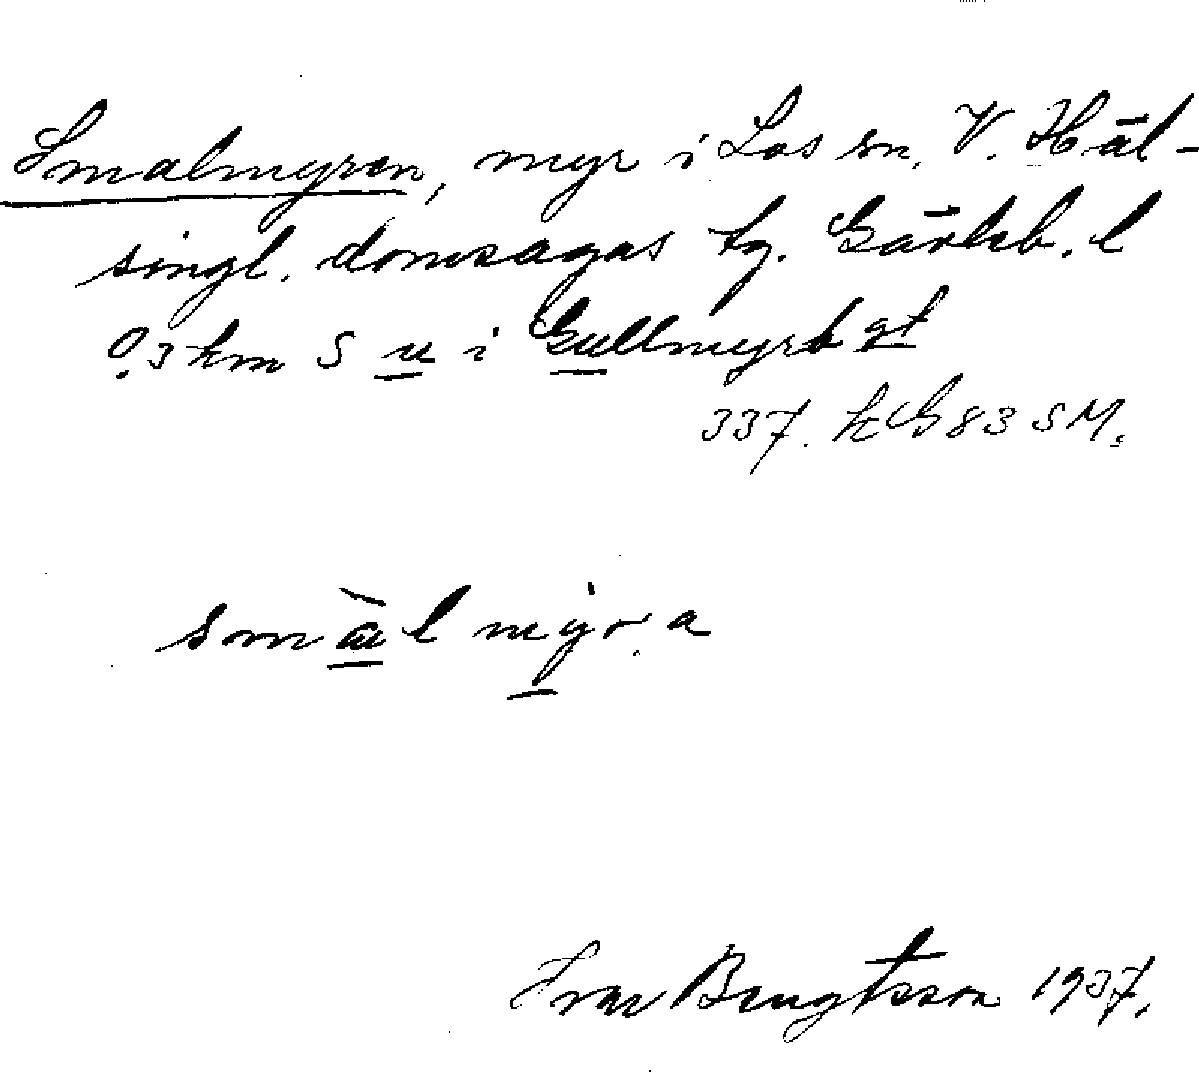 Smalmyren, myr i Los sn. V. Häl-
singl. domsagas tg. Gävleb. l
0,3 km S u i Gullmyrb gt
337. kG 83 SM.
smàlmyra
Ivar Bengtsson 1937.